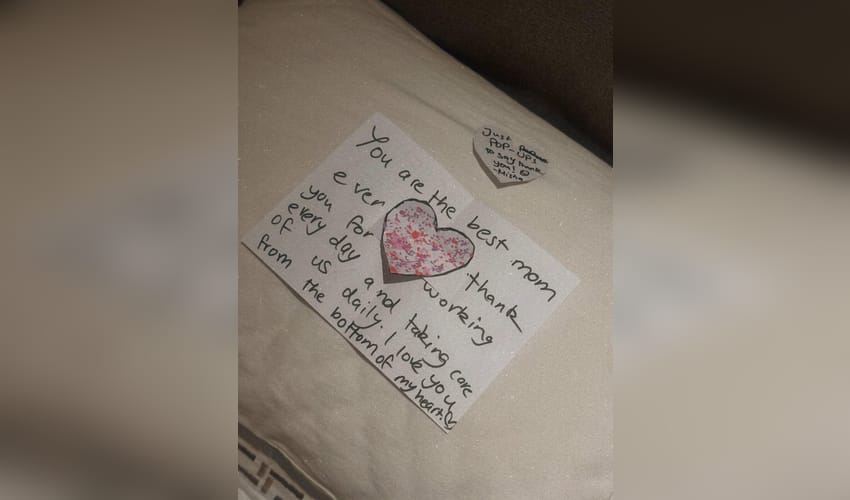 You are the best mom
ever thank
you for working
every day and taking care
of us daily. I love you
from the bottom of my heart.
Just
POP-UPs
to say thank
you!
-Misha